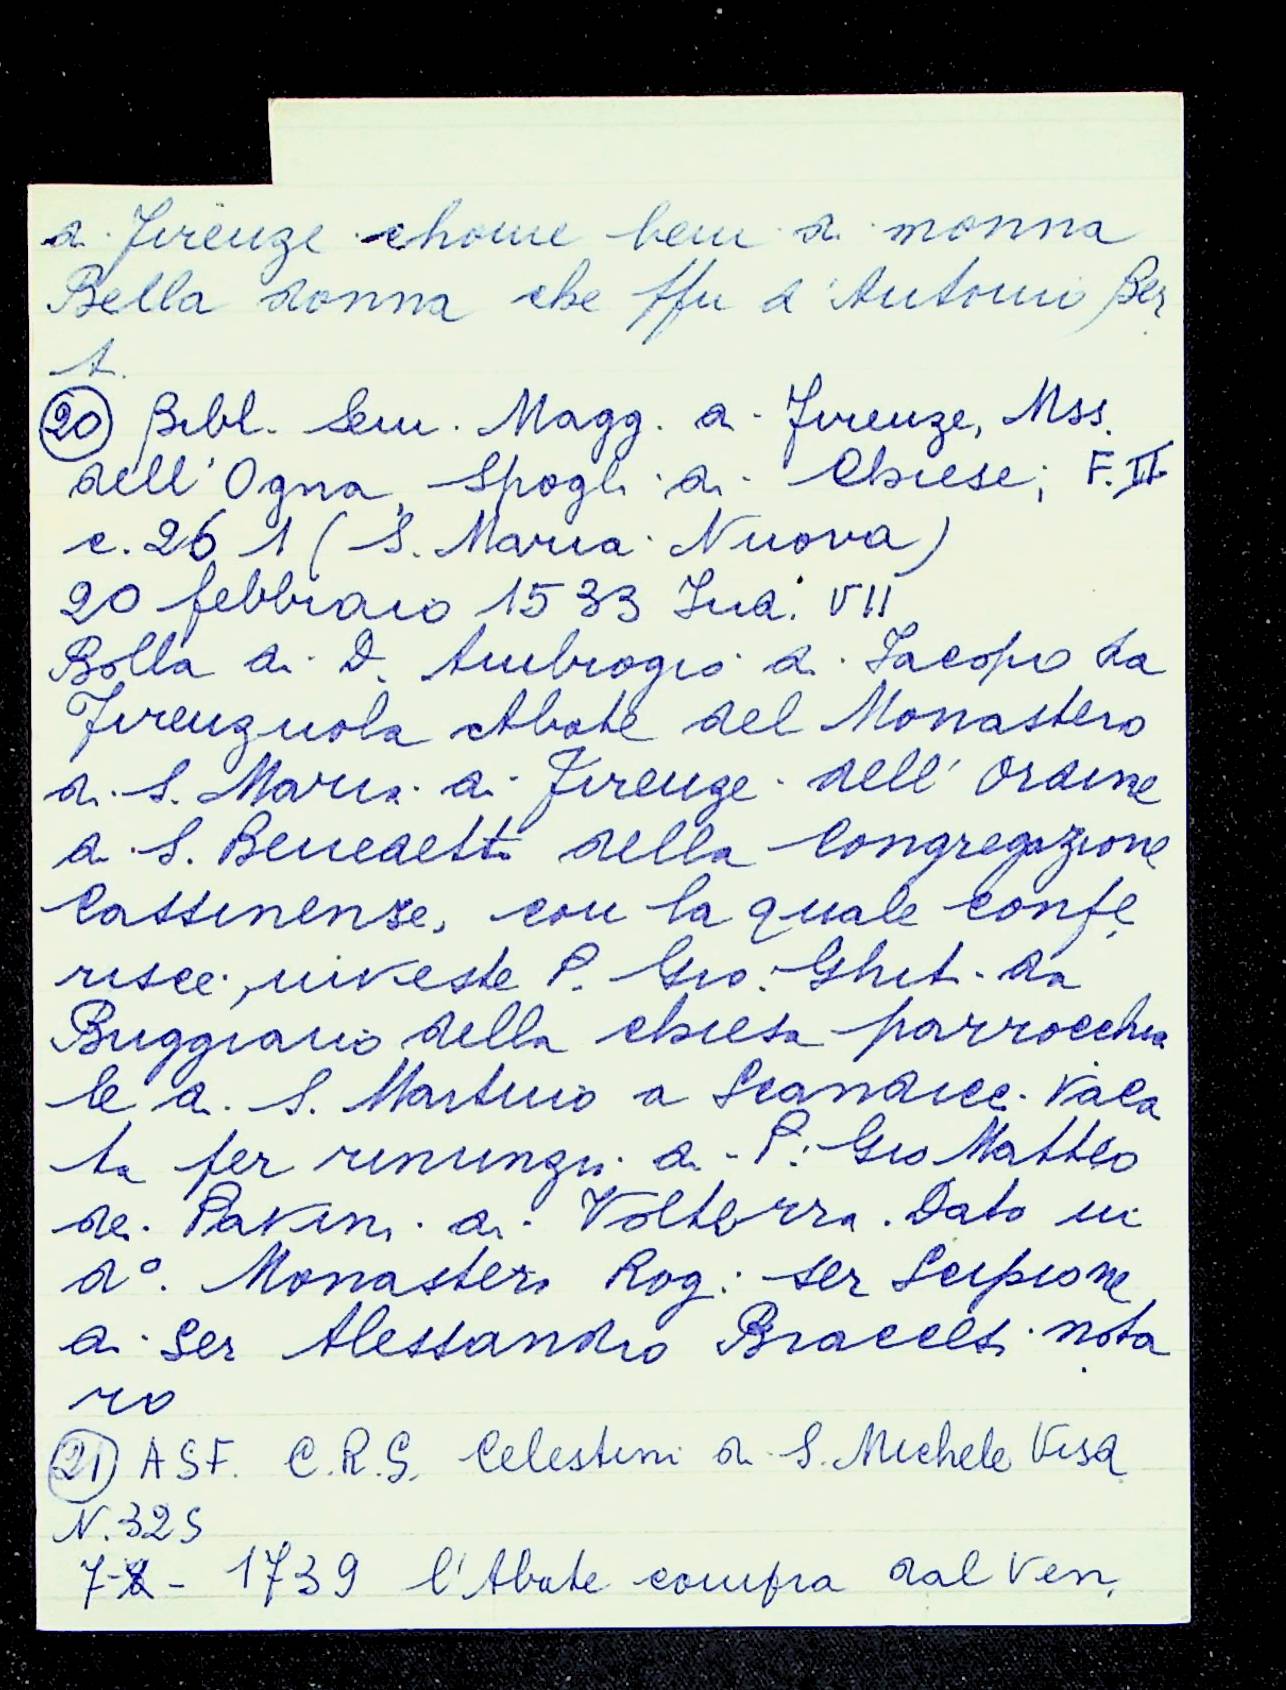 di Firenze chome beni di monna
Bella donna che ffu d'Antonio Ber
ti.
(20) Bibl. Sem. Magg. di Firenze, Mss.
dell'Ogna, Spogli di Chiese; F. II
c. 261 (S. Maria Nuova)
20 febbraio 1533 Ind. VII
Bolla di D. Ambrogio di Iacopo da
Firenzuola Abate del Monastero
di S. Maria di Firenze dell'Ordine
di S. Benedetto della Congregazione
Cassinense, con la quale confe
risce, investe P. Gio: Ghit. da
Buggiano della chiesa parrocchia
le di S. Martino a Scandicci vaca
ta per rinunzia di P. Gio Matteo
de Pavini di Volterra. Dato in
dº. Monastero Rog: ser Scipione
di Ser Alessandro Braccesi nota
ro
(21) ASF. C.R.S. Celestini di S. Michele Visd.
N. 325
7-2- 1739 l'Abate compra dal Ven.